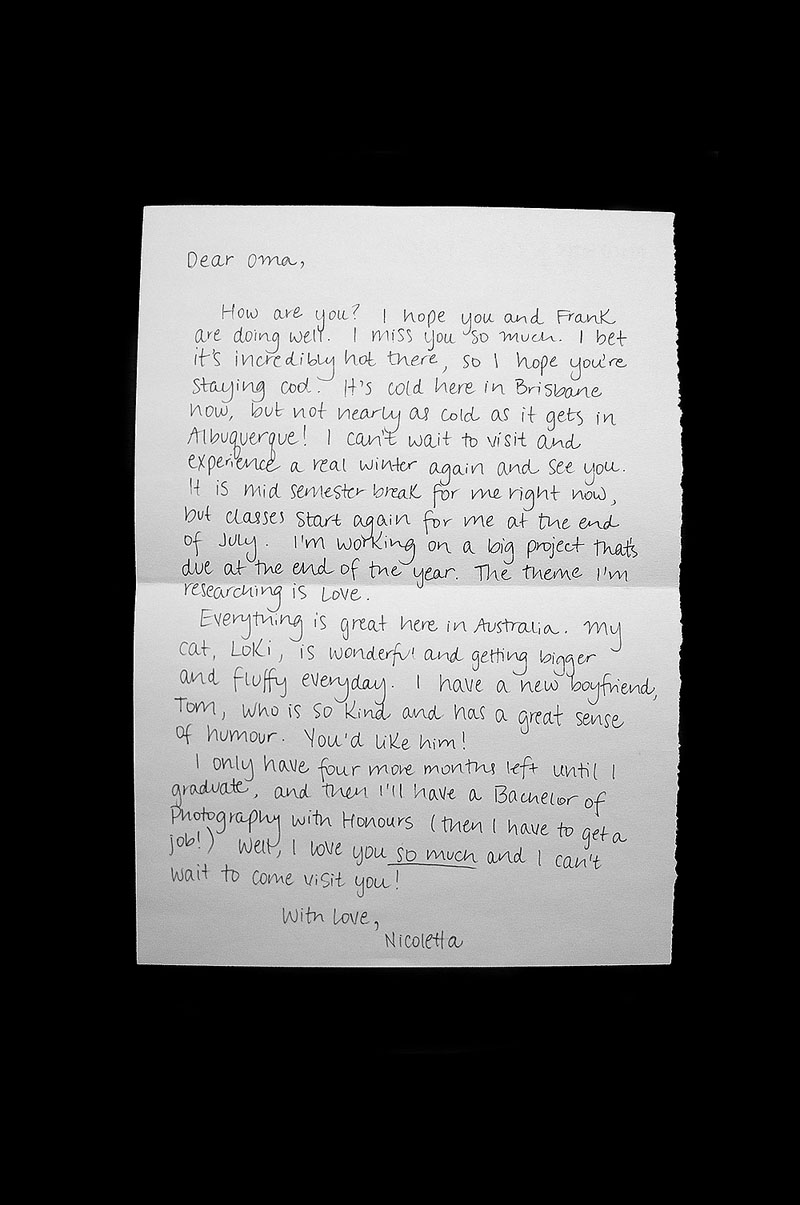 Dear Oma,
How are you? I hope you and Frank
are doing well. I miss you so much. I bet
it's incredibly hot there, so I hope you're
staying cool. It's cold here in Brisbane
now, but not nearly as cold as it gets in
Albuquerque! I can't wait to visit and
experience a real winter again and see you.
It is mid semester break for me right now,
but classes start again for me at the end
of July. I'm working on a big project that's
due at the end of the year. The theme I'm
researching is Love.
Everything is great here in Australia. My
cat, Loki, is wonderful and getting bigger
and fluffy everyday. I have a new boyfriend,
Tom, who is so kind and has a great sense
of humour. You'd like him!
I only have four more months left until I
graduate, and then I'll have a Bachelor of
Photography with Honours (then I have to get a
job!) Well, I love you so much and I can't
wait to come visit you!
With Love,
Nicoletta